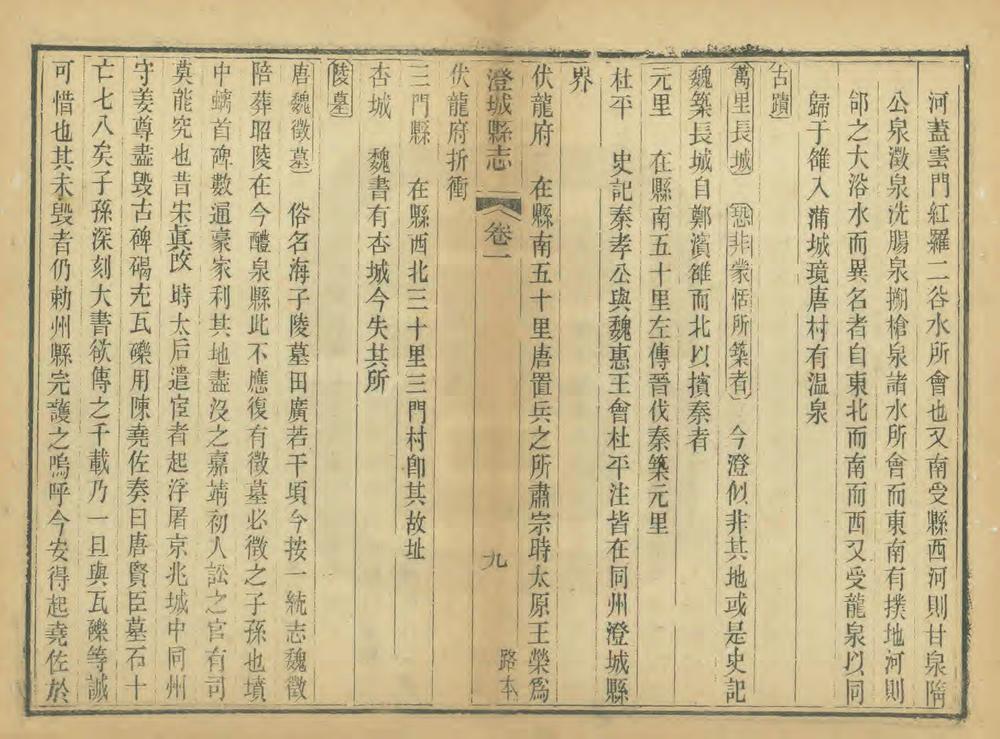 河蓋雲門紅羅二谷水所會也又南受縣西河則甘泉隋
公泉澂泉洗腸泉搠槍泉諸水所會而東南有撲地河則
郃之大浴水而異名者自東北而南而西又受龍泉以同
歸于雒入蒲城境唐村有温泉
古蹟
萬里長城 恐非蒙恬所築者 今澄似非其地或是史記
魏築長城自鄭濱雒而北以擯秦者
元里 在縣南五十里左傳晉伐秦築元里
杜平 史記秦孝公與魏惠王會杜平注皆在同州澄城縣
界
伏龍府 在縣南五十里唐置兵之所肅宗時太原王榮爲
澄城縣志 卷一 九 路本
伏龍府折衝
三門縣 在縣西北三十里三門村卽其故址
杏城 魏書有杏城今失其所
陵墓
唐魏徵墓 俗名海子陵墓田廣若干頃今按一統志魏徵
陪葬昭陵在今醴泉縣此不應復有徵墓必徵之子孫也墳
中螭首碑數通豪家利其地盡沒之嘉靖初人訟之官有司
莫能究也昔宋真改時太后遣宦者起浮屠京兆城中同州
守姜尊盡毀古碑碣充瓦礫用陳堯佐奏曰唐賢臣墓石十
亡七八矣子孫深刻大書欲傳之千載乃一旦與瓦礫等誠
可惜也其未毀者仍勅州縣完護之嗚呼今安得起堯佐於